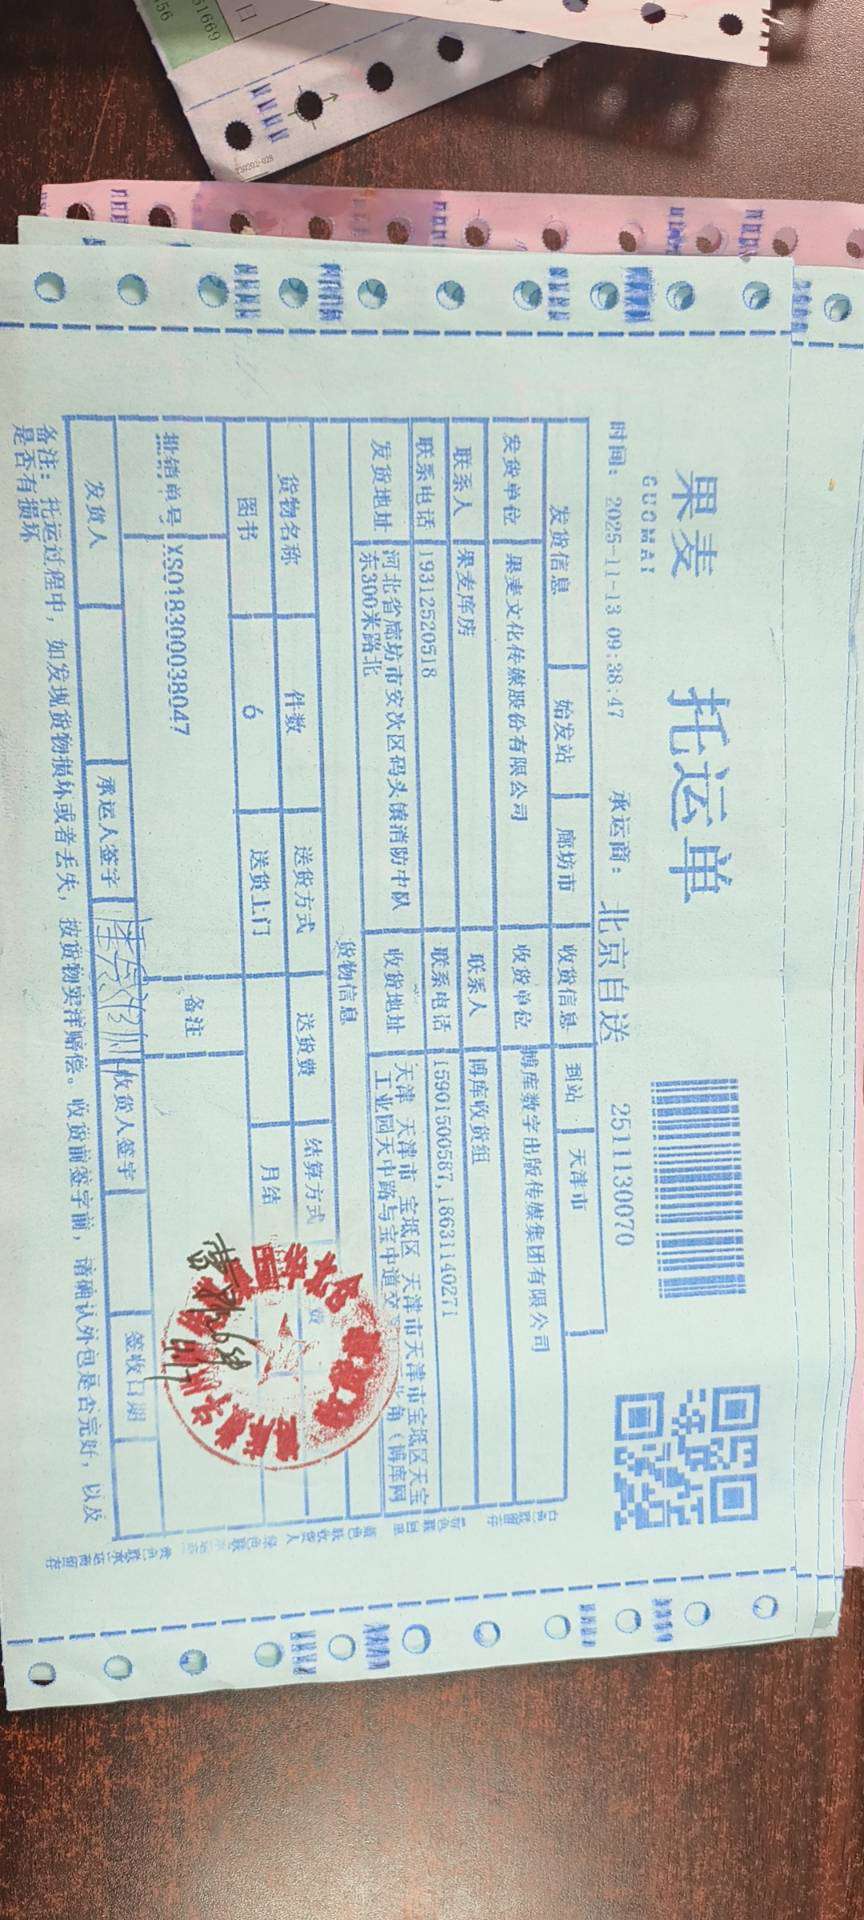 果麦 托运单
GUOMAI
时间： 2025-11-13 09:38:47 承运商： 北京自送 2511130070
发货信息 始发站 廊坊市 收货信息 到站 天津市
发货单位 果麦文化传媒股份有限公司 收货单位 博库数字出版传媒集团有限公司
联系人 果麦库房 联系人 博库收货组
联系电话 19312520518 联系电话 15901500587,18631140271
发货地址 河北省廊坊市安次区码头镇消防中队 收货地址 天津 天津市 宝坻区 天津市天津市宝坻区天宝
东300米路北 工业园天中路与宝中道交 角（博库网
货物信息
货物名称 件数 送货方式 送货费 结算方式 费
图书 6 送货上门 月结
批销单号 XS018300038047 备注
发货人 承运人签字 收货人签字 签收日期
备注： 托运过程中，如发现货物损坏或者丢失，按货物实洋赔偿。收货前签字前，请确认外包是否完好，以及
是否有损坏